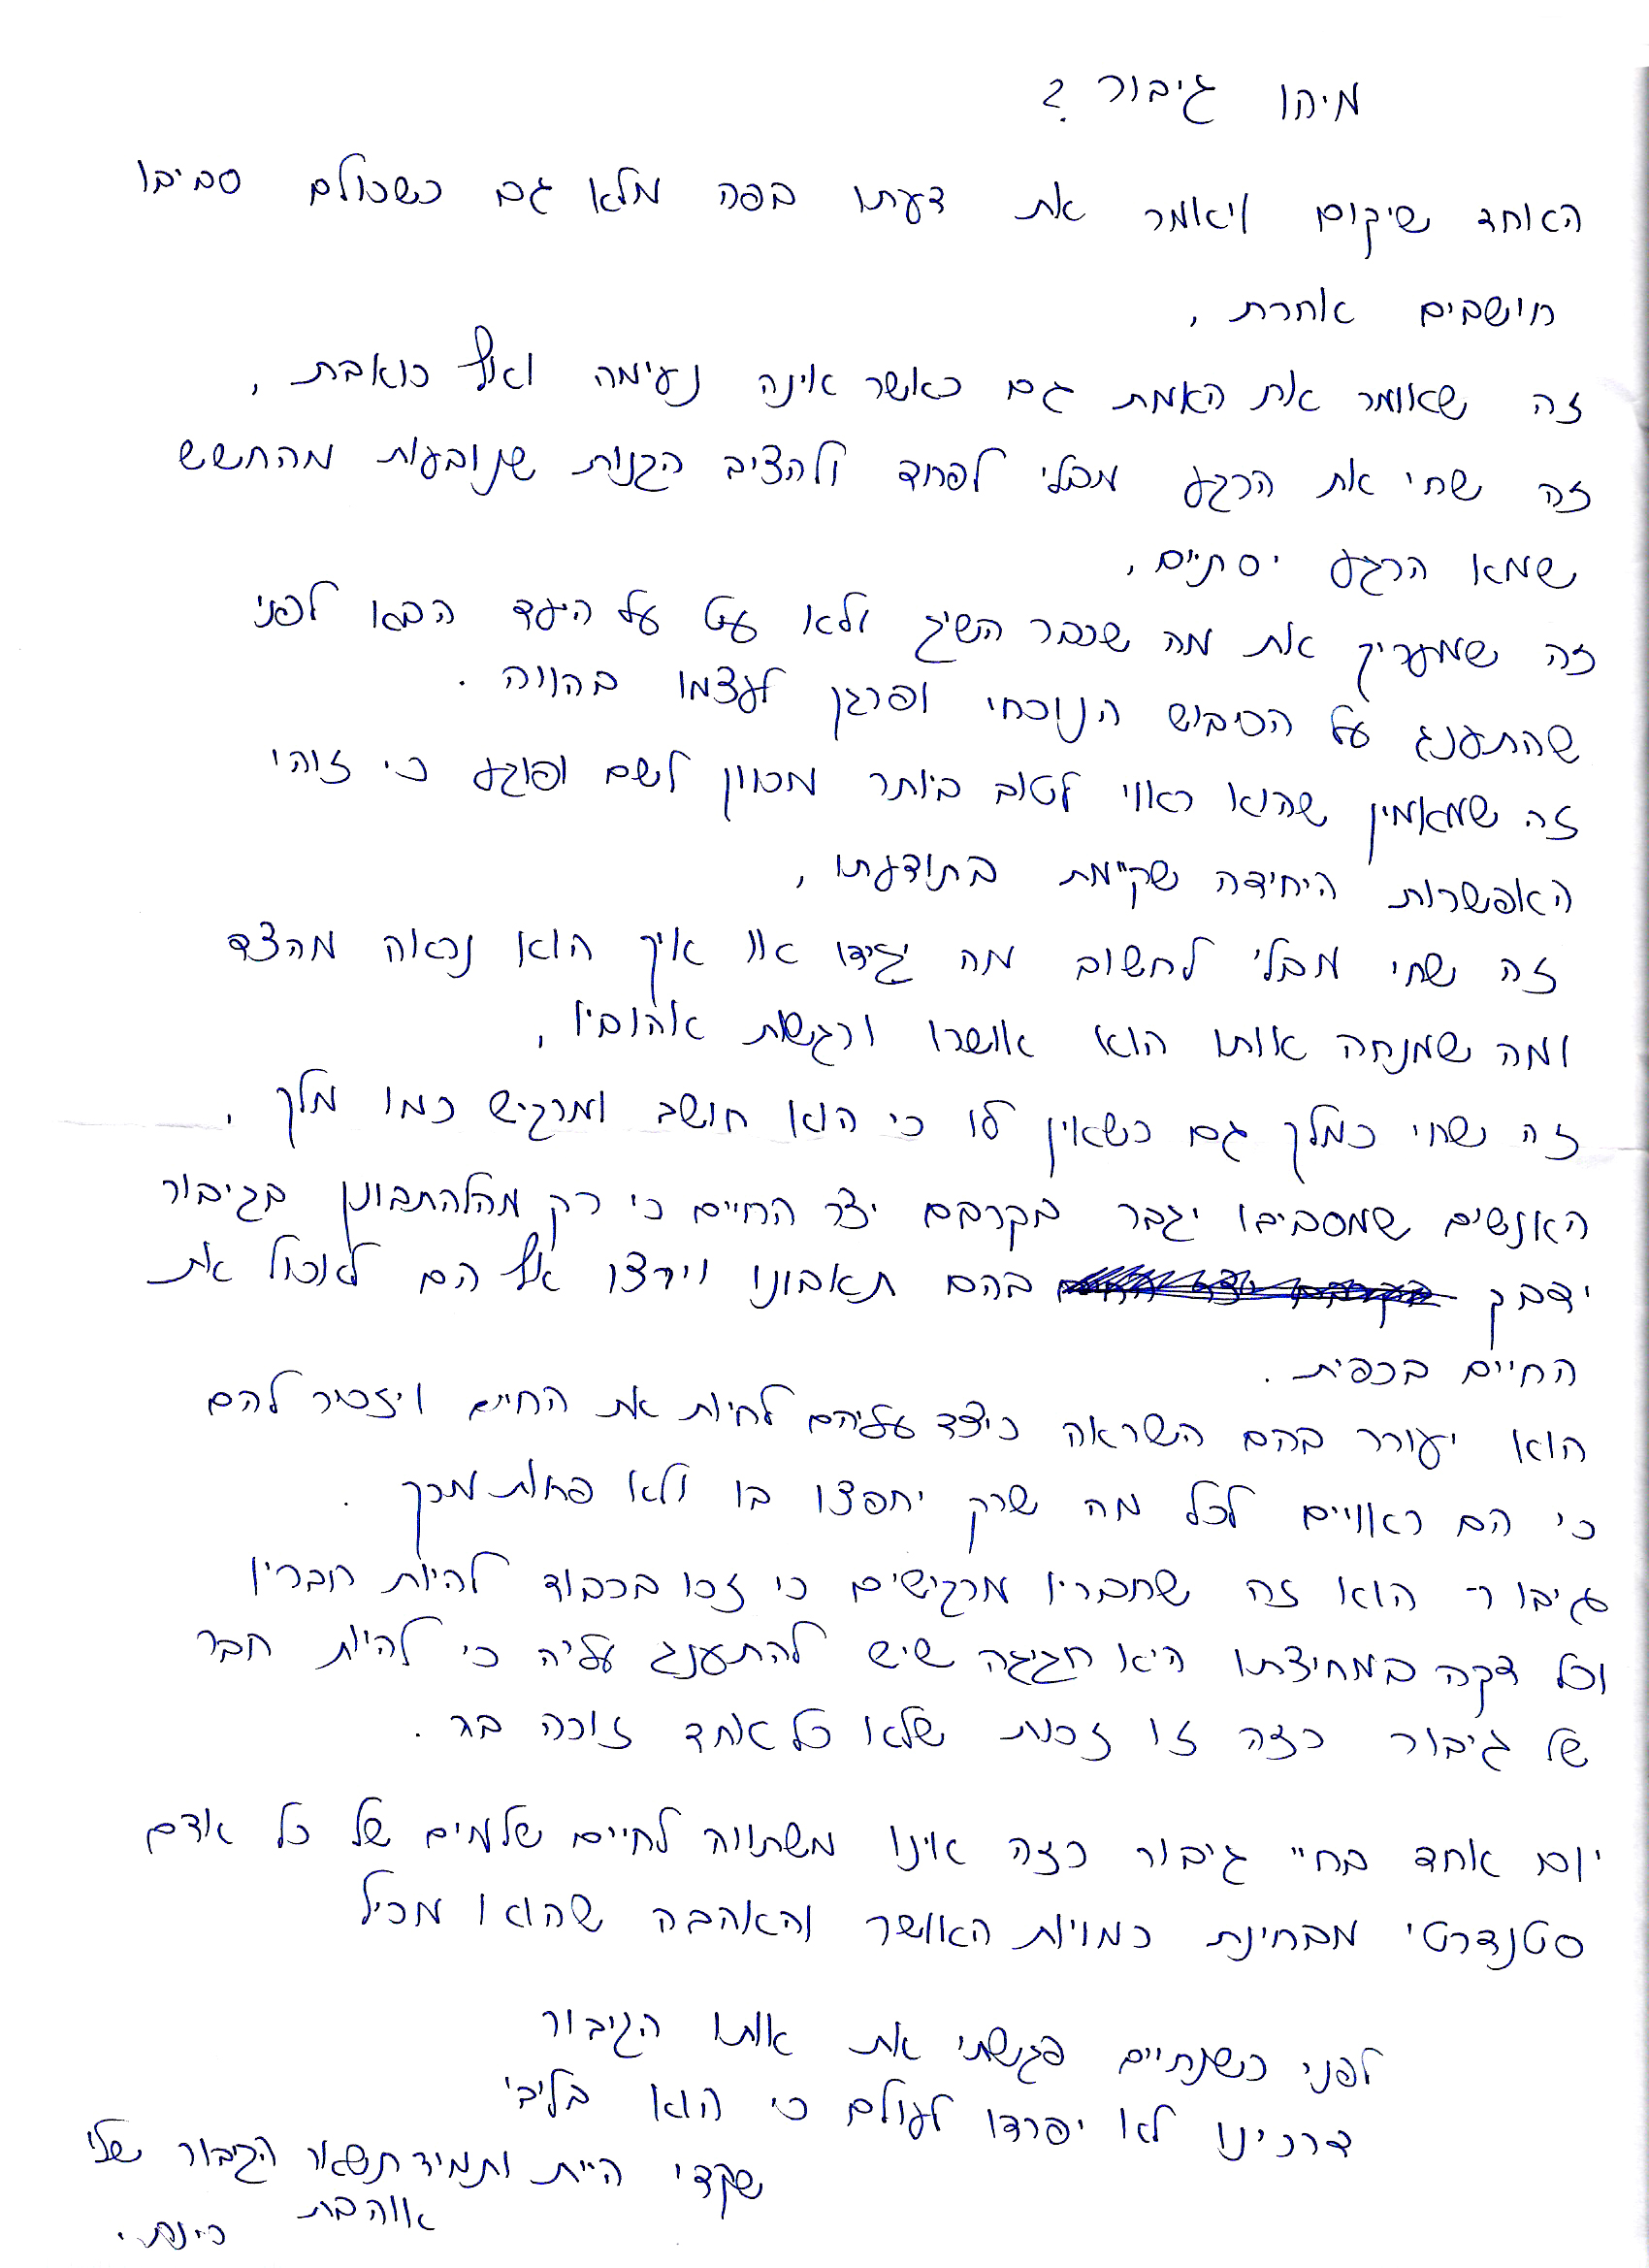 מיהו גיבור ?
האחד שיקום ויאמר את דעתו בפה מלא גם כשכולם סביבו
חושבים אחרת ,
זה שאומר את האמת גם כאשר אינה נעימה ואף כואבת ,
זה שחי את הרגע מבלי לפחד ולהציב הגנות שנובעות מהחשש
שמא הרגע יסתיים ,
זה שמעריך את מה שכבר השיג ולא עט על היעד הבא לפני
שהתענג על הכיבוש הנוכחי ופרגן לעצמו בהווה .
זה שמאמין שהוא ראוי לטוב ביותר מכוון לשם ופוגע כי זוהי
האפשרות היחידה שקיימת בתודעתו ,
זה שחי מבלי לחשוב מה יגידו או איך הוא נראה מהצד
ומה שמנחה אותו הוא אושרו ורגשות אהוביו ,
זה שחי כמלך גם כשאין לו כי הוא חושב ומרגיש כמו מלך .
האנשים שמסביבו יגבר בקרבם יצר החיים כי רק מהלהתבונן בגיבור
ידבק בהם תאבונו וירצו אף הם לאכול את
החיים בכפית .
הוא יעורר בהם השראה כיצד עליהם לחיות את החיים ויזכיר להם
כי הם ראויים לכל מה שרק יחפצו בו ולא פחות מכך .
גיבור - הוא זה שחבריו מרגישים כי זכו בכבוד להיות חבריו
וכל דקה במחיצתו היא חגיגה שיש להתענג עליה כי להיות חבר
של גיבור כזה זו זכות שלא כל אחד זוכה בה .
יום אחד בחיי גיבור כזה אינו משתווה לחיים שלמים של כל אדם
סטנדרטי מבחינת כמויות האושר והאהבה שהוא מכיל
לפני כשנתיים פגשתי את אותו הגיבור
דרכינו לא יפרדו לעולם כי הוא בליבי
שקדי היית ותמיד תשאר הגיבור שלי
אוהבת
כינת .